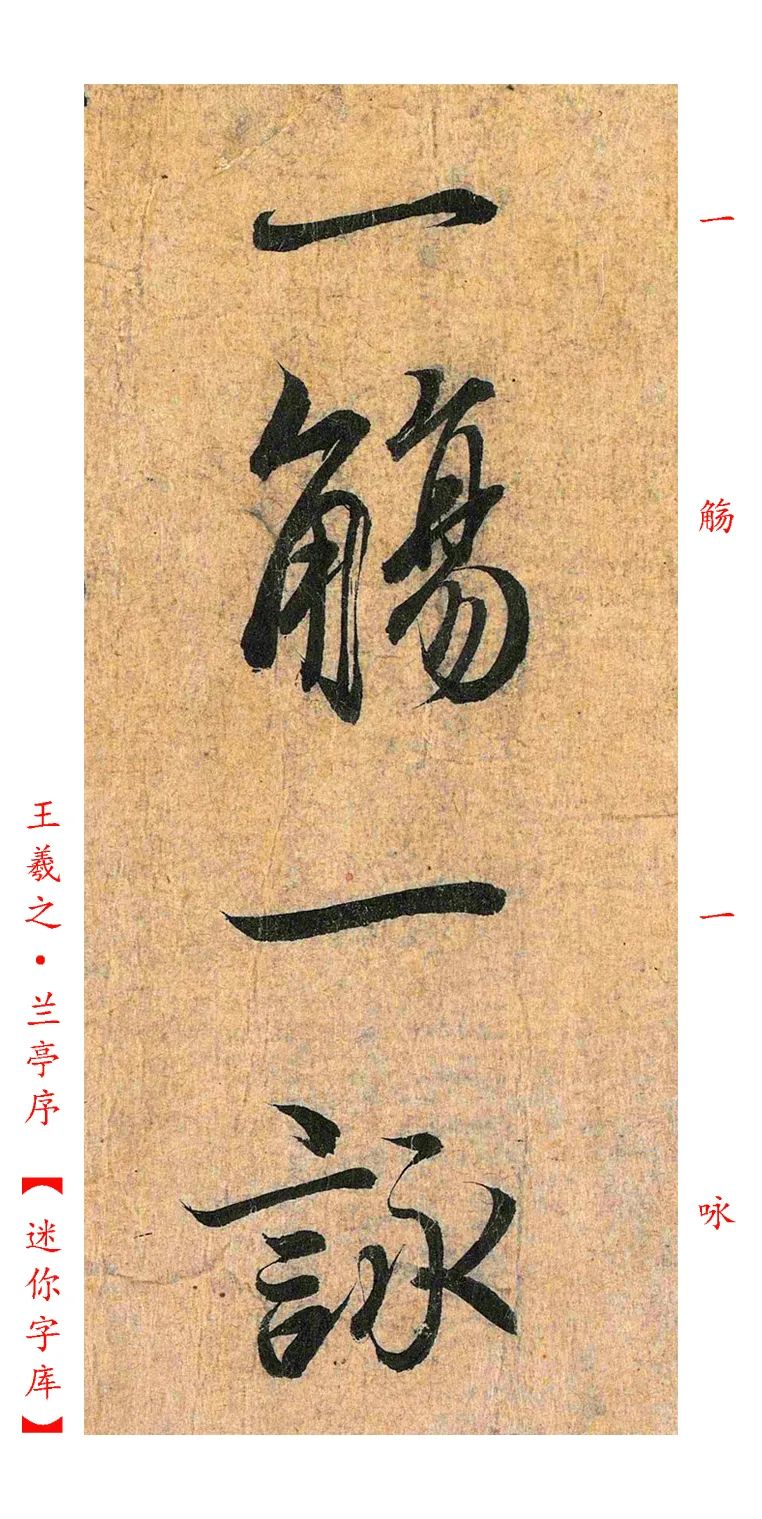 一觴一詠
一觞一咏
王羲之·兰亭序【迷你字库】